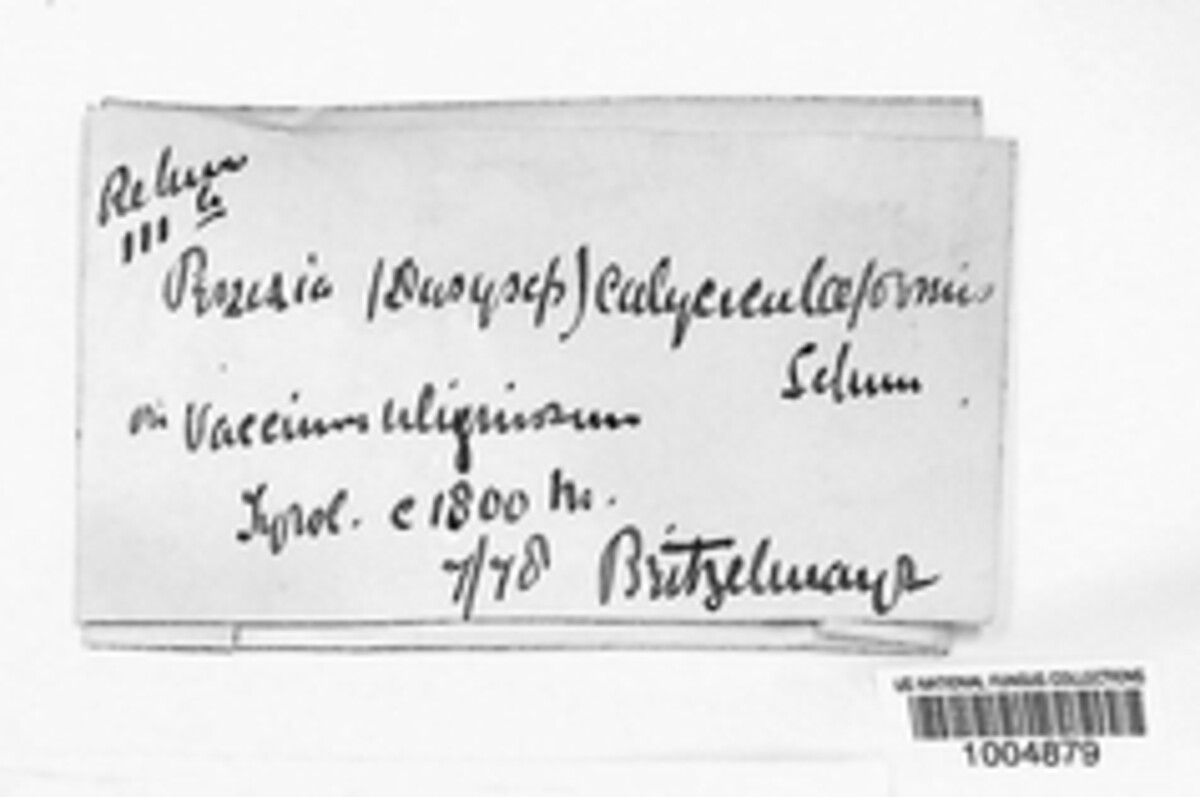 Rehm
III b
Peziza (Dasysch) calyculaeformis
Schum
on Vaccinium uliginosum
Tyrol. c 1800 m.
7/78 Britzelmayr
US NATIONAL FUNGUS COLLECTIONS
1004879